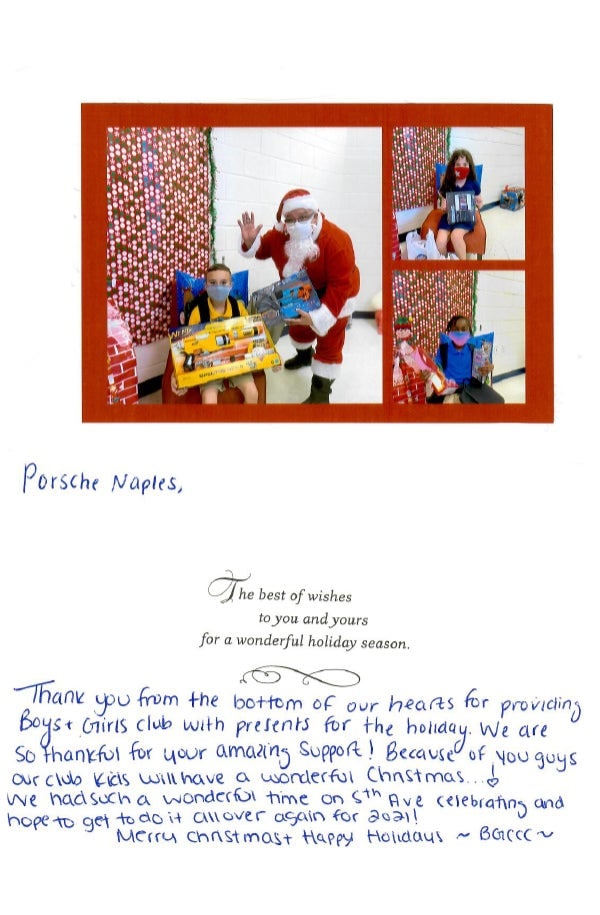 NERF
Porsche Naples,
The best of wishes
to you and yours
for a wonderful holiday season.
Thank you from the bottom of our hearts for providing
Boys + Girls club with presents for the holiday. We are
so thankful for your amazing support! Because of you guys
our club kids will have a wonderful Christmas...!
We had such a wonderful time on 5th Ave celebrating and
hope to get to do it all over again for 2021!
Merry Christmas + Happy Holidays ~ BGCCC ~